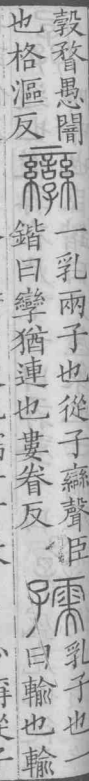 㝅瞀愚闇
也格漚反
孿
一乳兩子也從子䜌聲臣
鍇曰孿猶連也婁眷反
孺
乳子也一
曰輸也輸